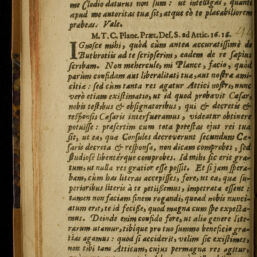 me Clodio daturus non sum: ut intelligas, quantū
apud me autoritas tua sit, atque eò te placabiliorem
præbeas. Vale.
M. T. C. Planc. Præt. Des. S. ad Attic. 16. 16.
IGnosce mihi, quòd cùm antea accuratissimè de
Buthrotiis ad te scripserim, eadem de re sæpius
scribam. Non mehercule, mi Plance, facio, quòd
parùm confidam aut liberalitati tuæ, aut nostræ ami-
citiæ: sed cùm tanta res agatur Attici nostri, nunc
verò etiam existimatio, ut id quod probavit Cæsar,
nobis testibus & obsignatoribus, qui & decretis &
responsis Cæsaris interfueramus, videatur obtinere
potuisse: præsertim cùm tota potestas ejus rei tua
sit, ut ea, quæ Consules decreverunt secundùm Cæ-
saris decreta & responsa, non dicam comprobes, sed
studiosè libentérque comprobes. Id mihi sic erit gra-
tum, ut nulla res gratior esse possit. Et si jam spera-
bam, cùm has literas accepisses, fore, ut ea, quæ su-
perioribus literis à te petissemus, impetrata essent:
tamen non faciam finem rogandi, quoad nobis nunci-
atum erit, te id fecisse, quod magna cum spe expecta-
mus. Deinde enim confido fore, ut alio genere lite-
rarum utamur, tibique pro tuo summo beneficio gra-
tias agamus: quod si acciderit, velim sic existimes,
non tibi tam Atticum, cujus permagna res agitur,